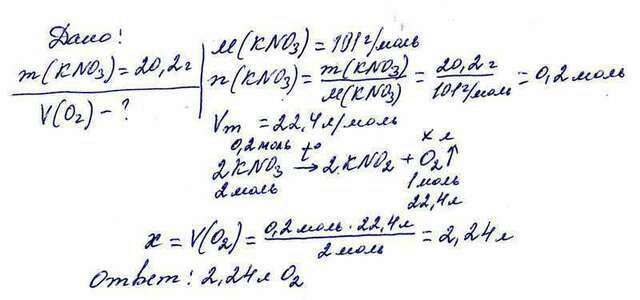 Дано:
m(KNO3) = 20,2 г
V(O2) - ?
M(KNO3) = 101 г/моль
n(KNO3) = m(KNO3)/M(KNO3) = 20,2 г/101 г/моль = 0,2 моль
Vm = 22,4 л/моль
0,2 моль t° x л
2KNO3 → 2KNO2 + O2↑
2 моль 1 моль
22,4 л
x = V(O2) = 0,2 моль · 22,4 л/2 моль = 2,24 л
Ответ: 2,24 л O2